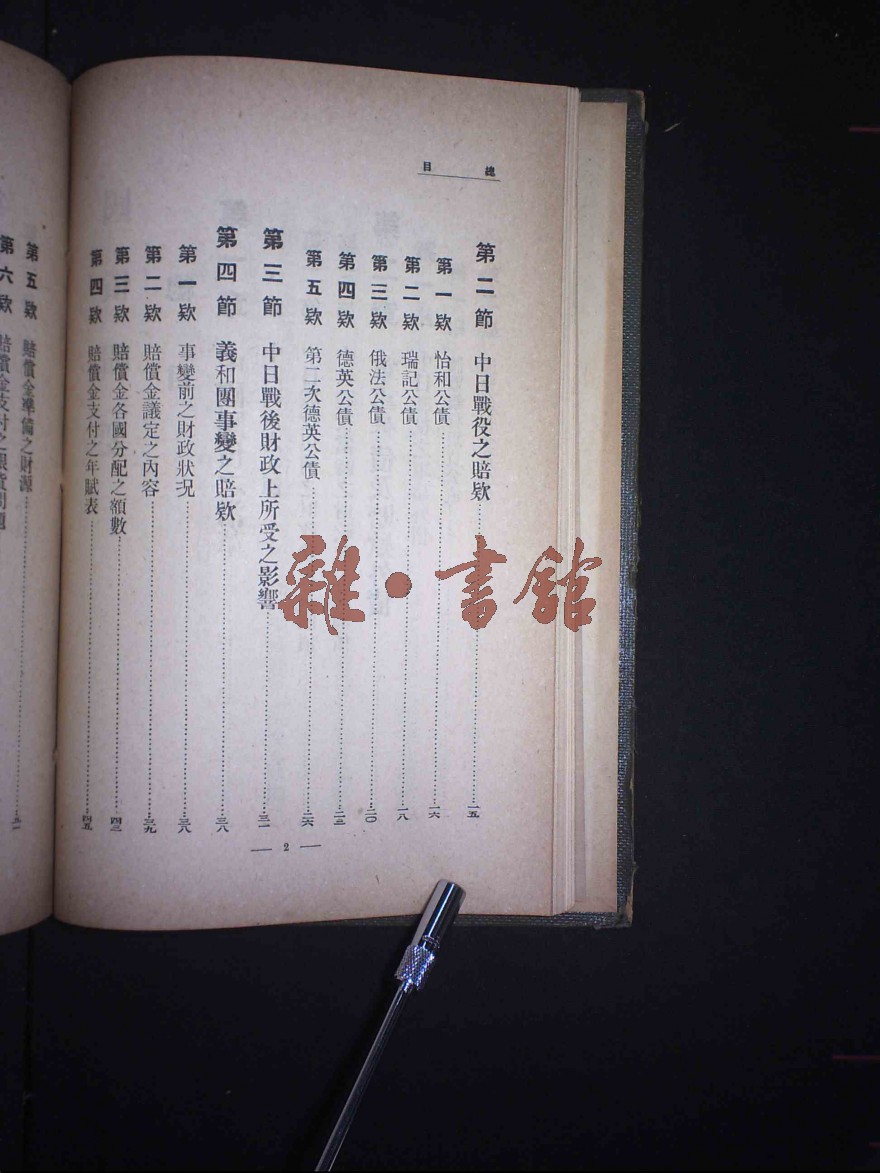 總目
第二節 中日戰役之賠欵……一五
第一欵 怡和公債……一六
第二欵 瑞記公債……一八
第三欵 俄法公債……二〇
第四欵 德英公債……二三
第五欵 第二次德英公債……二六
第三節 中日戰後財政上所受之影響……三一
第四節 義和團事變之賠欵……三八
第一欵 事變前之財政狀况……三八
第二欵 賠償金議定之內容……三九
第三欵 賠償金各國分配之額數……四三
第四欵 賠償金支付之年賦表……四五
— 2 —
第五欵 賠償金準備之財源……
第六欵 賠償金支付之
雜·書館